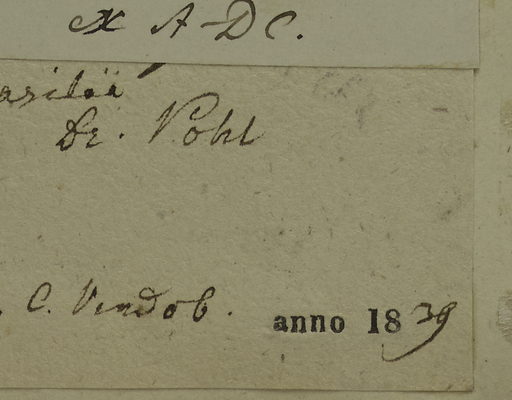 ex A-DC.
asiliä
Dr. Pohl
. C. Vindob. anno 1839